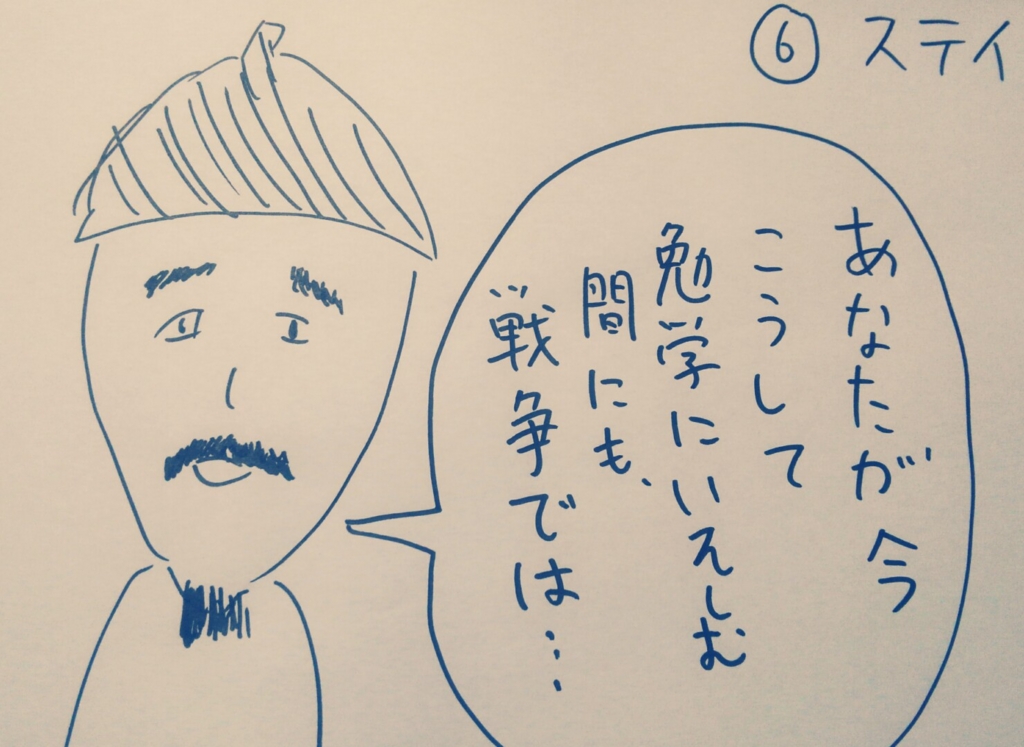 ⑥ スティ
あなたが今
こうして
勉学にいそしむ
間にも、
戦争では…